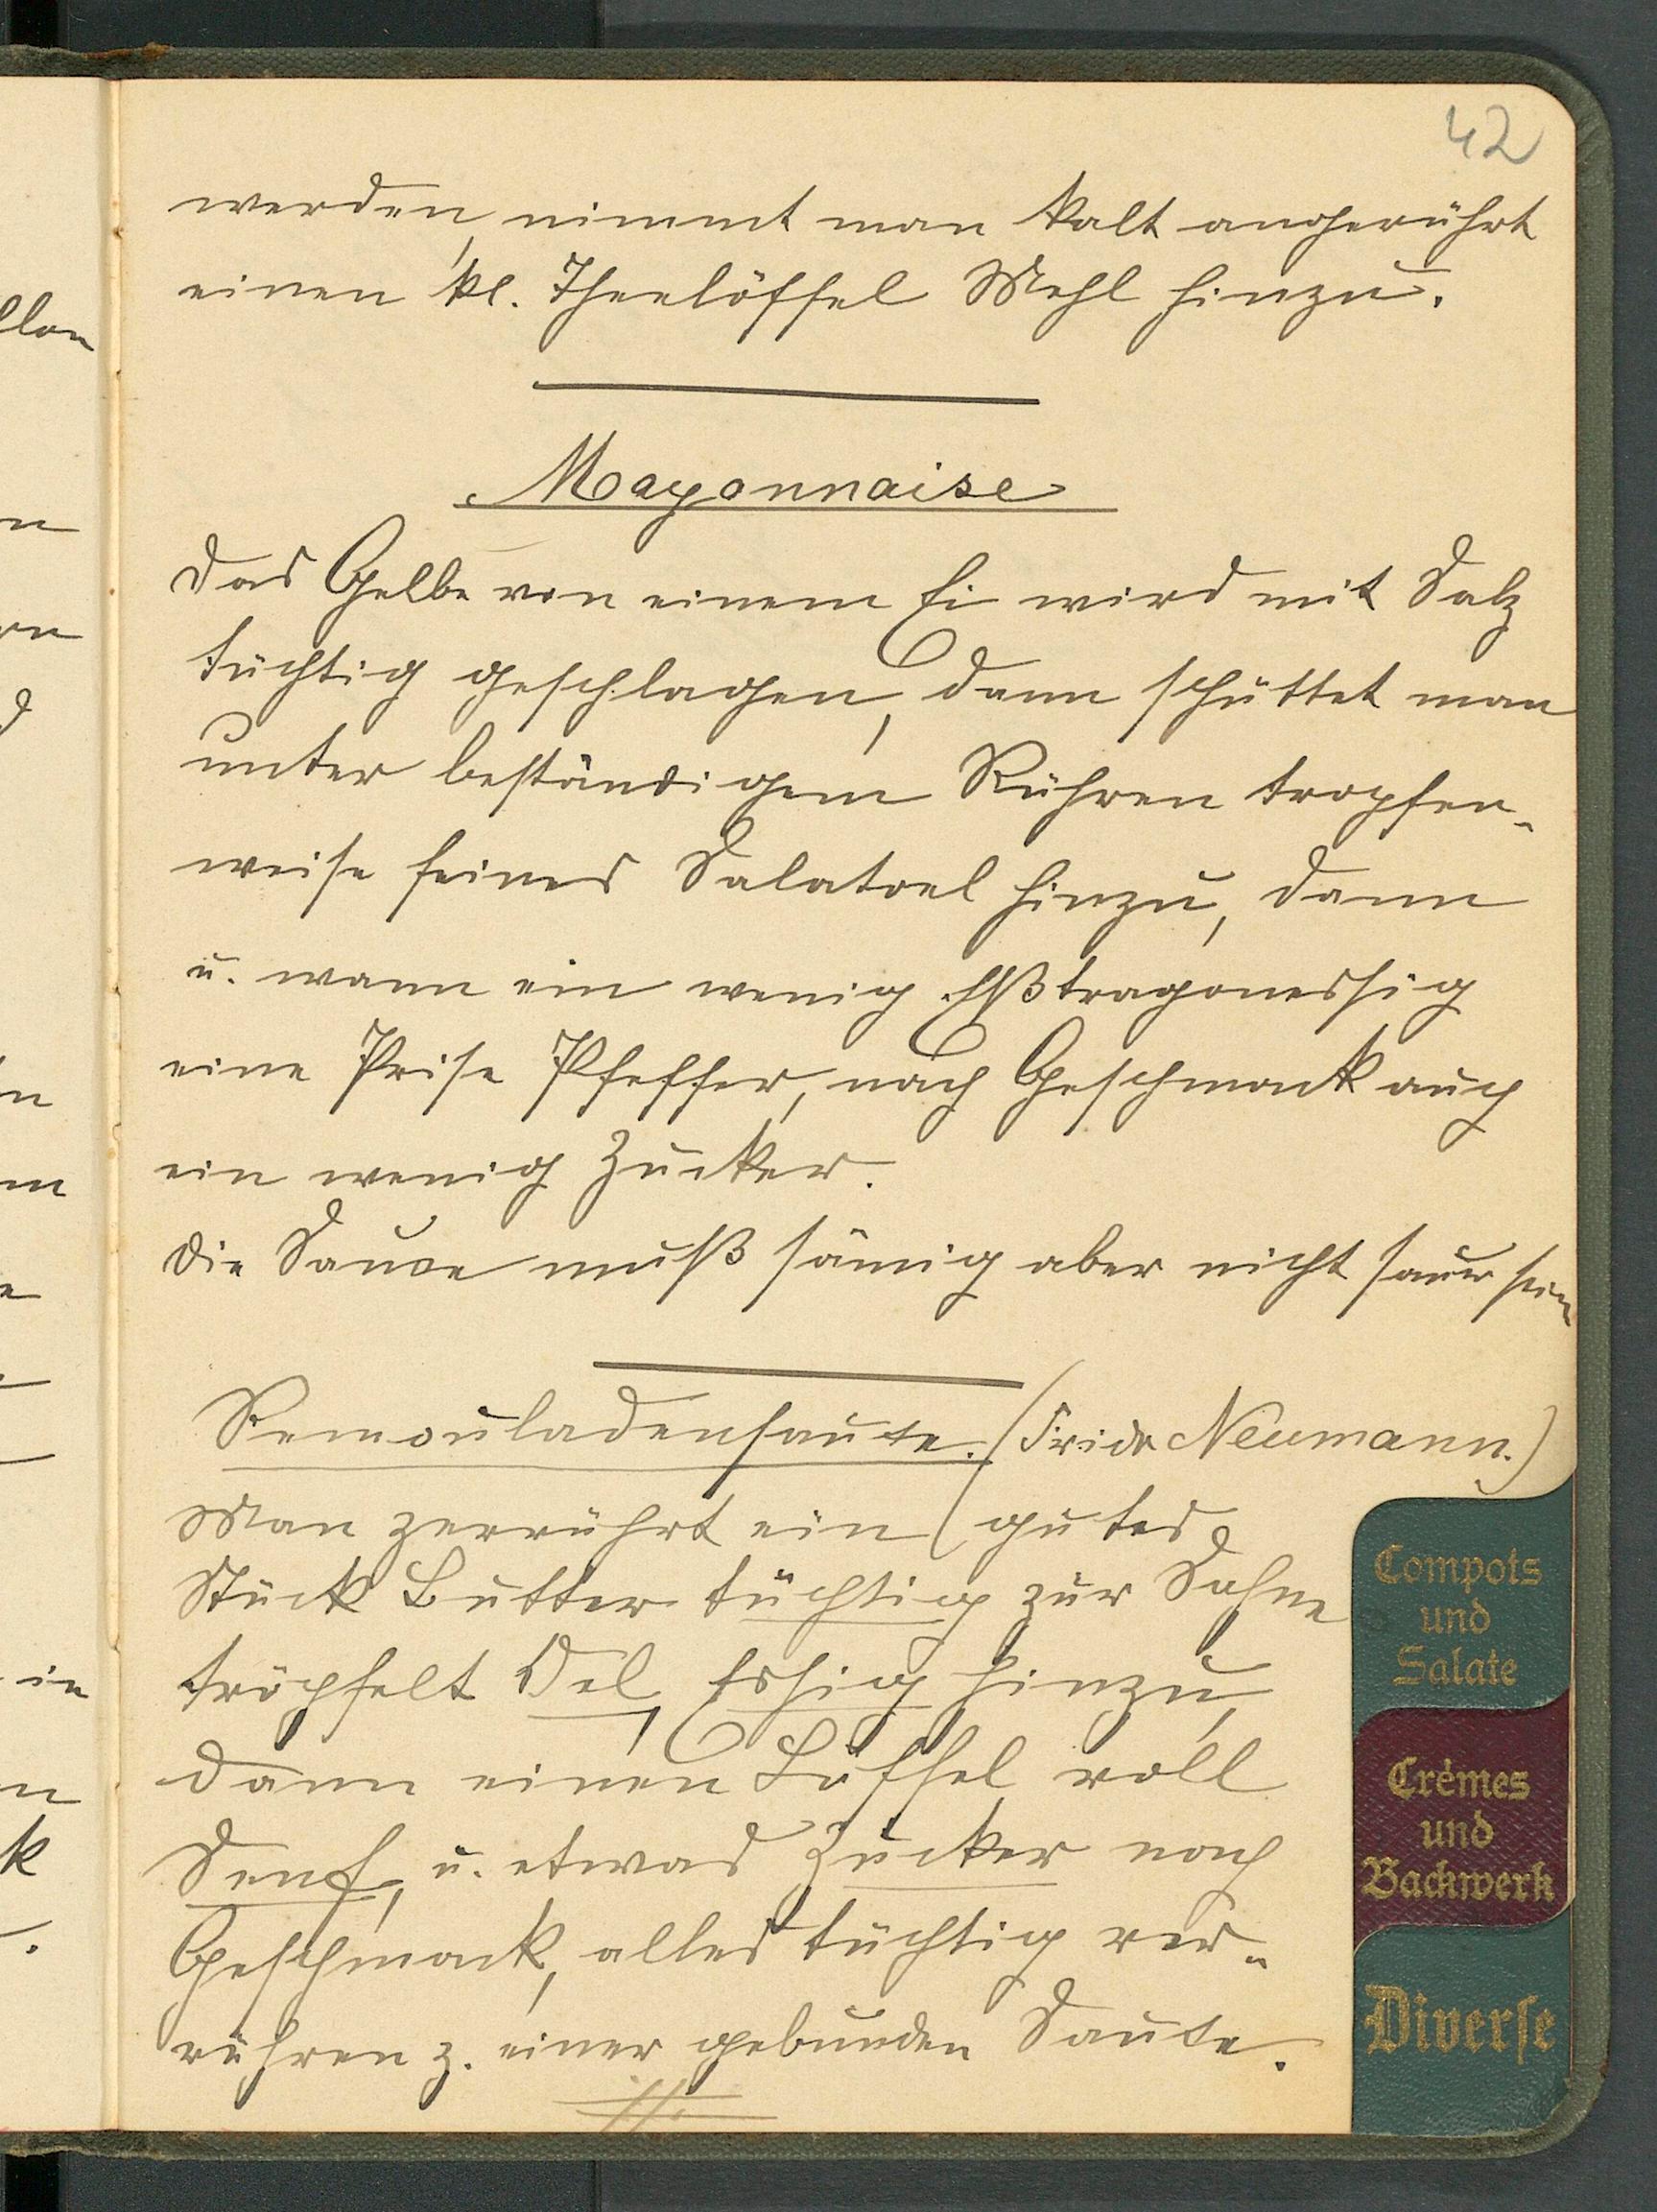 42
werden, nimmt man kalt angerührt
einen kl. Theelöffel Mehl hinzu.
Mayonnaise
Das Gelbe von einem Ei wird mit Salz
tüchtig geschlagen, dann schüttet man
unter beständigem Rühren tropfen-
weise feines Salatoel hinzu, dann
u. wann ein wenig Eßtragonessig
eine Prise Pfeffer, nach Geschmack auch
ein wenig Zucker.
Die Sauce muß sämig aber nicht sauer sein
Remouladensauce. (Frida Neumann.)
Man zerrührt ein gutes
Stück Butter tüchtig zur Sahne
tröpfelt Oel, Essig hinzu,
dann einen Löffel voll
Senf, u. etwas Zucker nach
Geschmack, alles tüchtig ver-
rühren z. einer gebunden Sauce.
Compots
und
Salate
Crèmes
und
Backwerk
Diverse